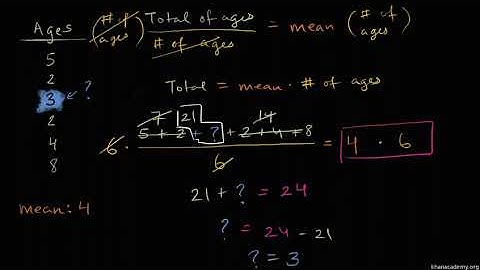 Ages
5
2
3 ?
2
4
8
mean: 4
(# of ages) Total of ages / # of ages = mean (# of ages)
Total = mean · # of ages
7 21 14
6 · 5 + 2 + ? + 2 + 4 + 8 / 6 = 4 · 6
21 + ? = 24
? = 24 - 21
? = 3
khanacademy.org